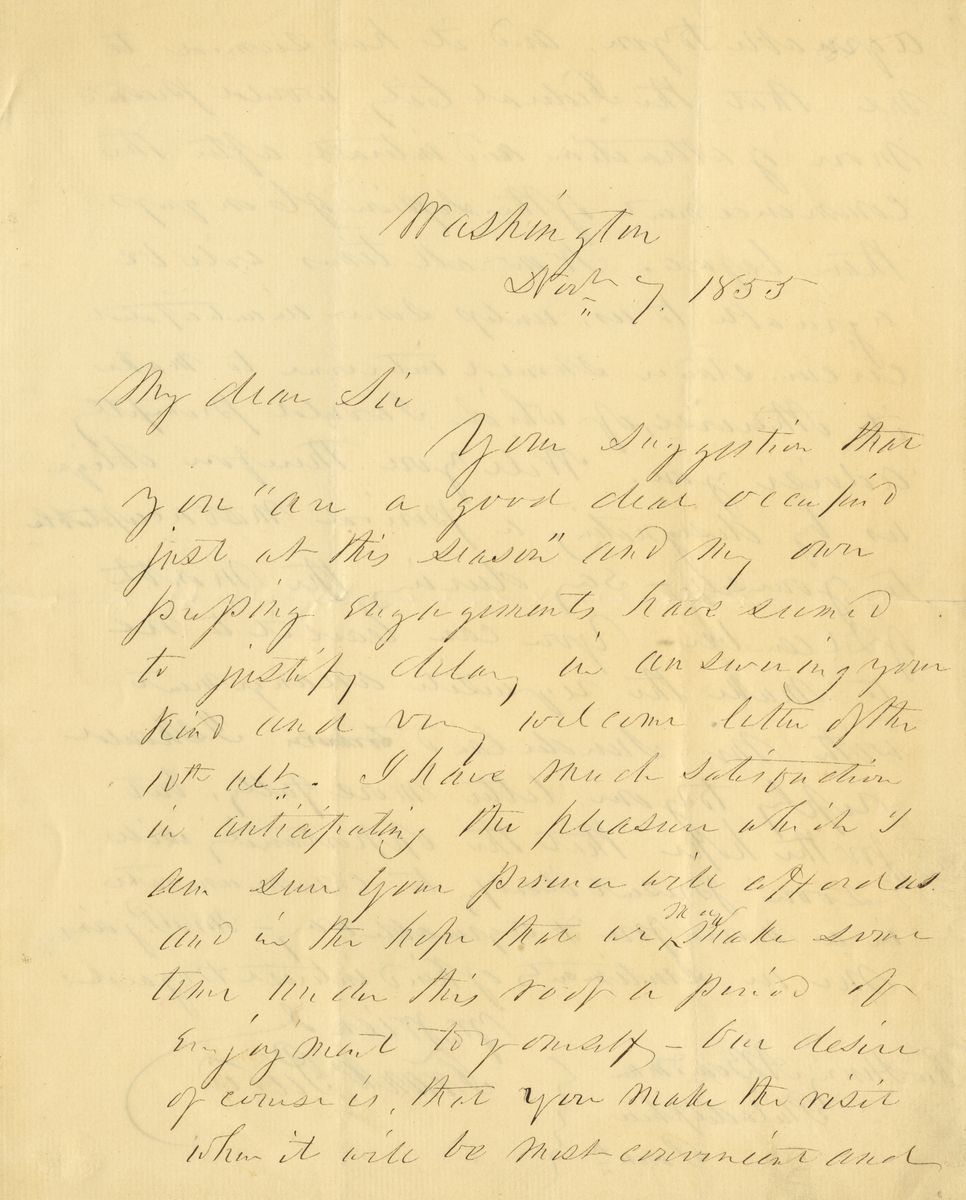 Washington
Novr 7. 1855
My dear Sir
Your suggestion that
you "are a good deal occupied
just at this season" and my own
pressing engagements have seemed
to justify delay in answering your
kind and very welcome letter of the
10th ult. I have much satisfaction
in anticipating the pleasure which I
am sure your presence will afford us
and in the hope that we may make some
time under this roof a period of
enjoyment to yourself – Our desire
of course is, that you make the visit
when it will be most convenient and